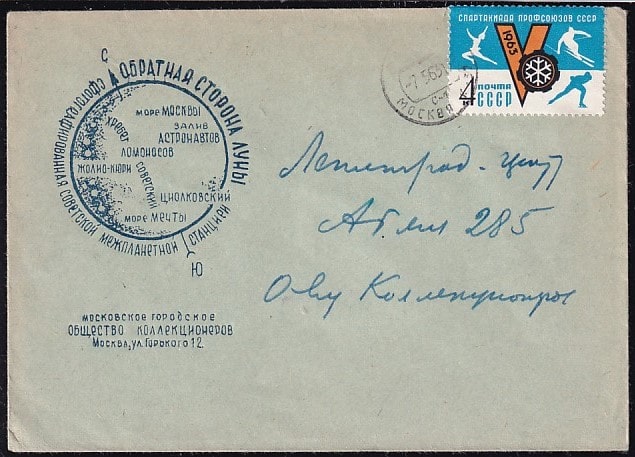 С
ОБРАТНАЯ СТОРОНА ЛУНЫ
СФОТОГРАФИРОВАННАЯ СОВЕТСКОЙ МЕЖПЛАНЕТНОЙ СТАНЦИЕЙ
МОРЕ МОСКВЫ
ЗАЛИВ
АСТРОНАВТОВ
ХРЕБЕТ
СОВЕТСКИЙ
ЛОМОНОСОВ
ЖОЛИО-КЮРИ
ЦИОЛКОВСКИЙ
МОРЕ МЕЧТЫ
Ю
МОСКОВСКОЕ ГОРОДСКОЕ
ОБЩЕСТВО КОЛЛЕКЦИОНЕРОВ
МОСКВА, УЛ. ГОРЬКОГО 12
СПАРТАКИАДА ПРОФСОЮЗОВ СССР
V
1963
4
ПОЧТА
СССР
МОСКВА
Ленинград-центр
285
О-ву Коллекционеров